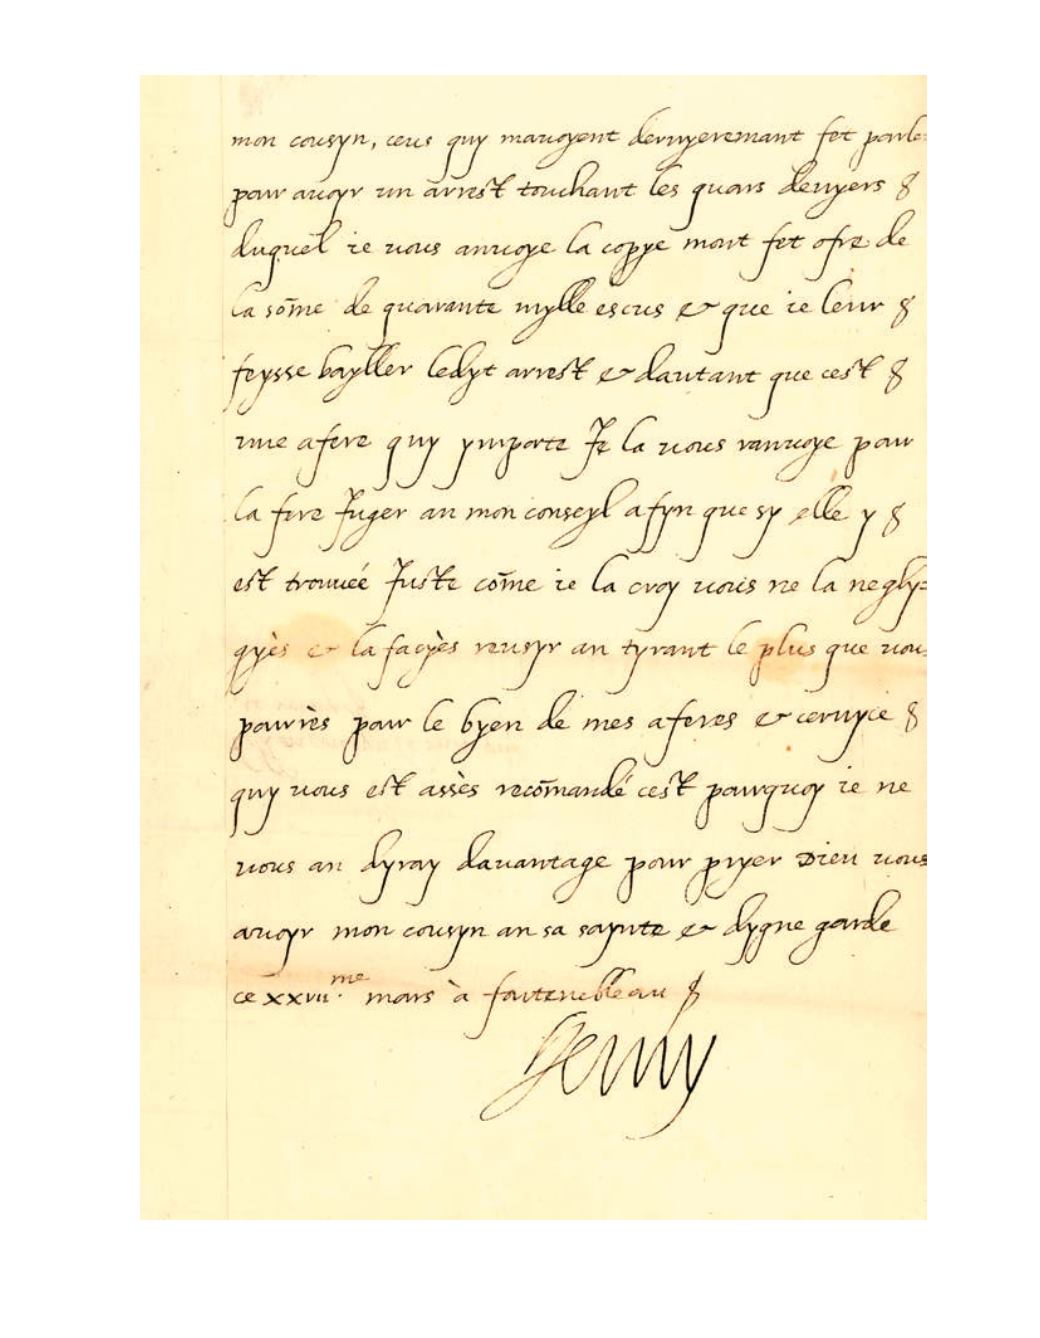 mon cousyn, ceus quy mavoyent dernyeremant fet parle=
pour avoyr un arrest touchant les quars denyers
duquel ie vous anvoye la copye mont fet ofre de
la som̄e de quarante mylle escus & que ie leur
feysse bayller ledyt arrest & dautant que cest
une afere quy ymporte Je la vous ranvoye pour
la fere Juger an mon conseyl afyn que sy elle y
est trouvéé Juste com̄e ie la croy vous ne la negly=
gyès & la facyès reusyr an tyrant le plus que vou=
pourrès pour le byen de mes aferes & cervyce
quy vous est assès recom̄andé cest pourquoy ie ne
vous an dyray davantage pour pryer Dieu vous
avoyr mon cousyn an sa saynte & dygne garde
ce xxvii.me mars à fontenebleau
Henry